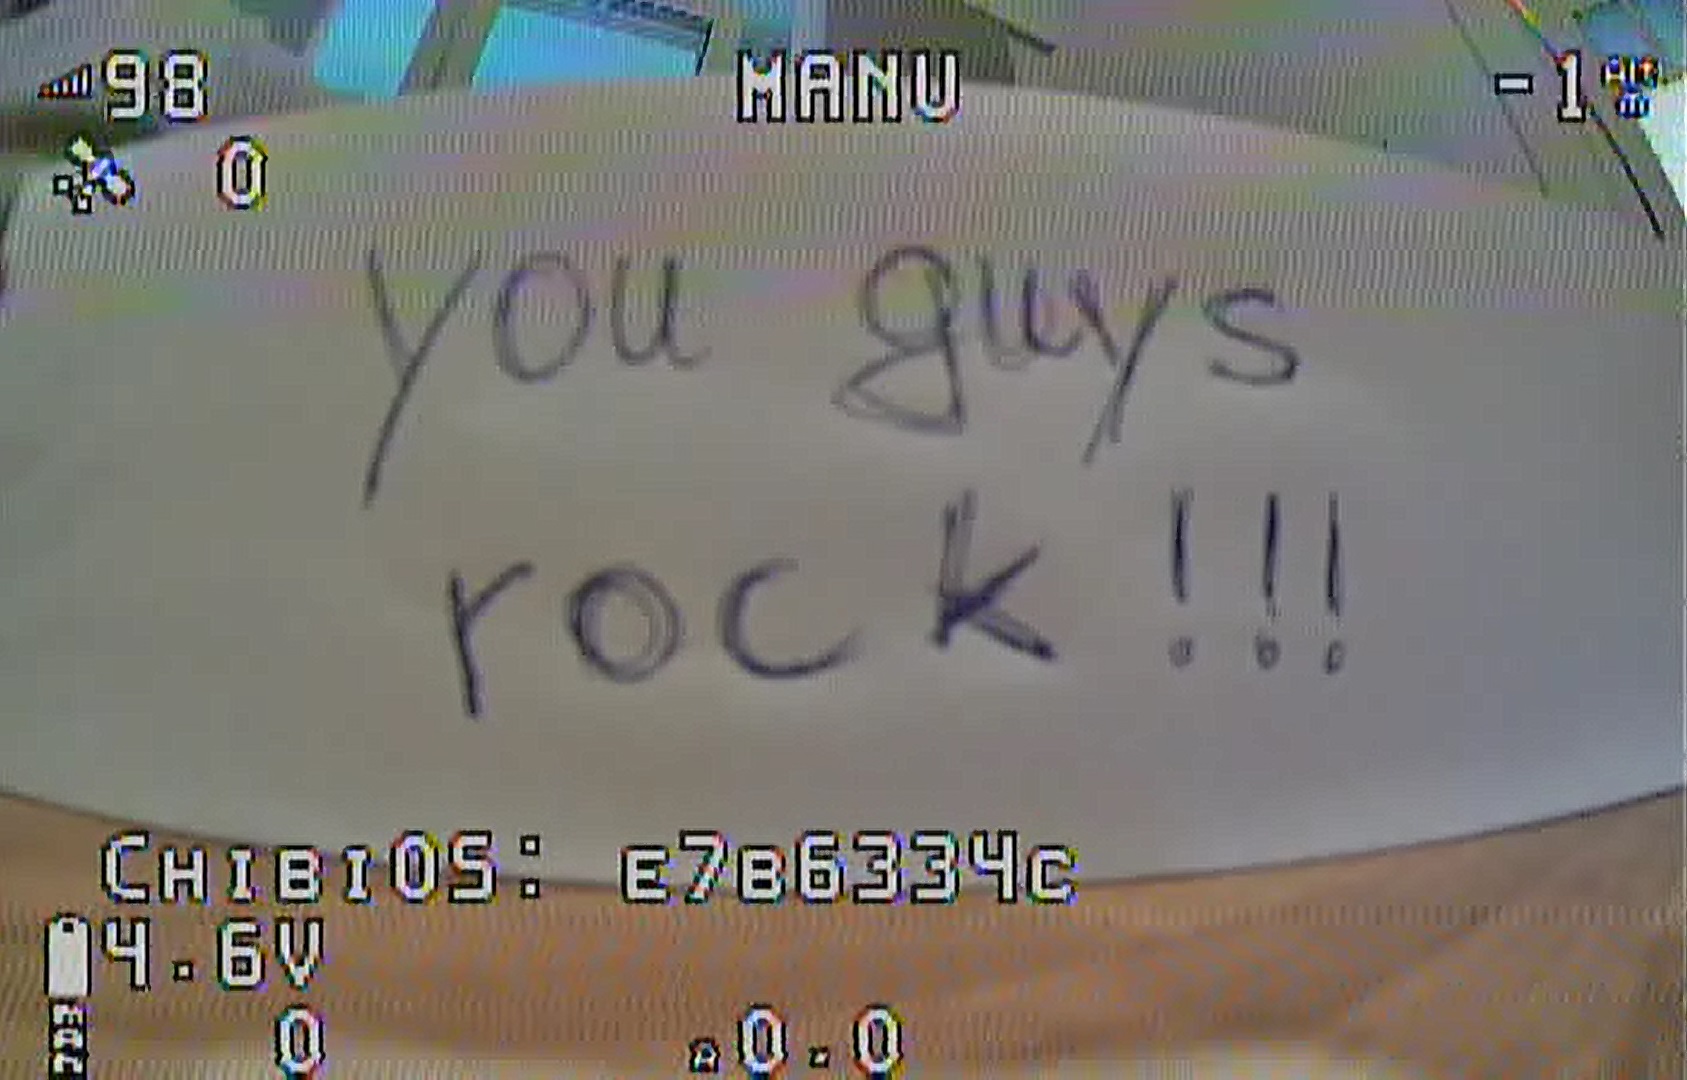 98 MANU -1 ALT m
0
you guys
rock!!!
CHIBIOS: E7B6334C
4.6V
0 0.0